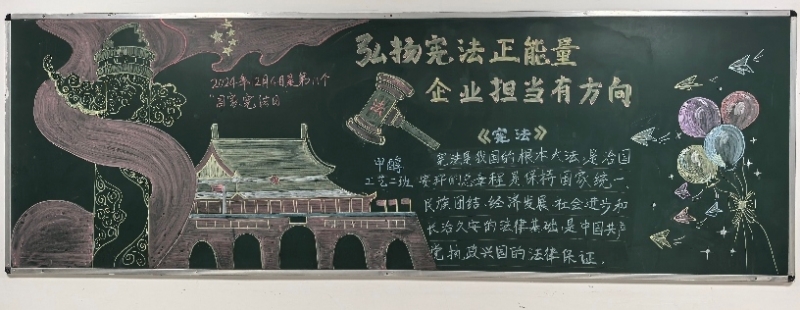 弘扬宪法正能量
企业担当有方向
2024年12月4日是第11个
国家宪法日
《宪法》
甲醇
工艺二班
宪法是我国的根本大法,是治国
安邦的总章程是保持国家统一、
民族团结、经济发展、社会进步和
长治久安的法律基础是中国共产
党执政兴国的法律保证.
法